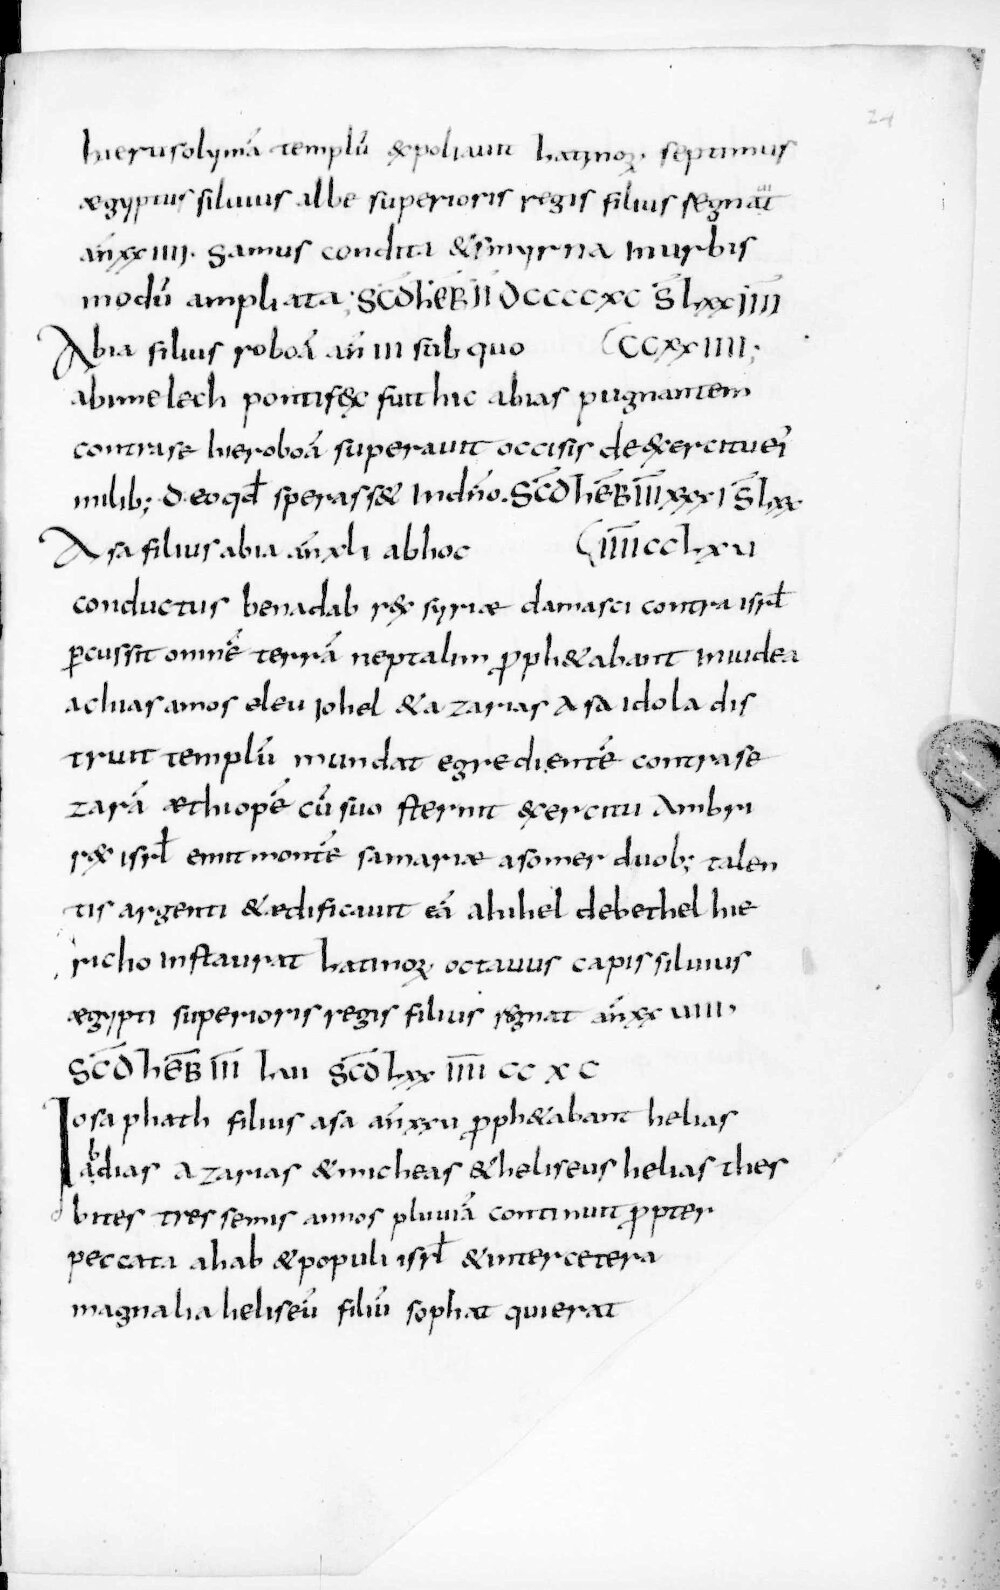 24
hierusolymā templū expoliauit Latinoꝝ. septimus
ægyptus siluius albe superioris regis filius regnaᵘⁱt
añ xx iiii. Samus condita & smyrna in urbis
modū ampliata; Sc̄d heb̄ II DCCCCXC S̄ Lxx IIII
Abia filius roboā añ III sub quo (CCXX IIII;
abimelech pontifex fuit hic abias pugnantem
contra se hieroboā superauit occisis de exercitu eī
milib; d. eo qđ sperasset in dño. Sc̄d heb̄ III xxxi S̄ Lxx
Asa filius abia añ xli ab hoc (IIII CCLxu
conductus benadab rex syriæ damasci contra isrł
ꝑcussit omnē terrā neptalim ꝓphetabant in iudea
achias amos eleu iohel & azarias Asa idola dis
truit templū mundat egredientē contra se
zarā æthiopē cū suo sternit exercitu Ambri
rex isrł emit montē samariæ a somer duob; talen
tis argenti & ædificauit eā ahihel de bethel hie
richo instaurat Latinoꝝ octauus capis siluius
ægypti superioris regis filius regnat añ xx uiiii.
Sc̄d heb̄ III Lxii Sc̄d Lxx IIII CC X C
Iosaphath filius asa añ xxu ꝓphetabant helias
abdias azarias & micheas & heliseus helias thes
bites tres semis annos pluuiā continuit ꝓpter
peccata ahab & populi isrł & inter cetera
magnalia heliseū filiū sophat qui erat